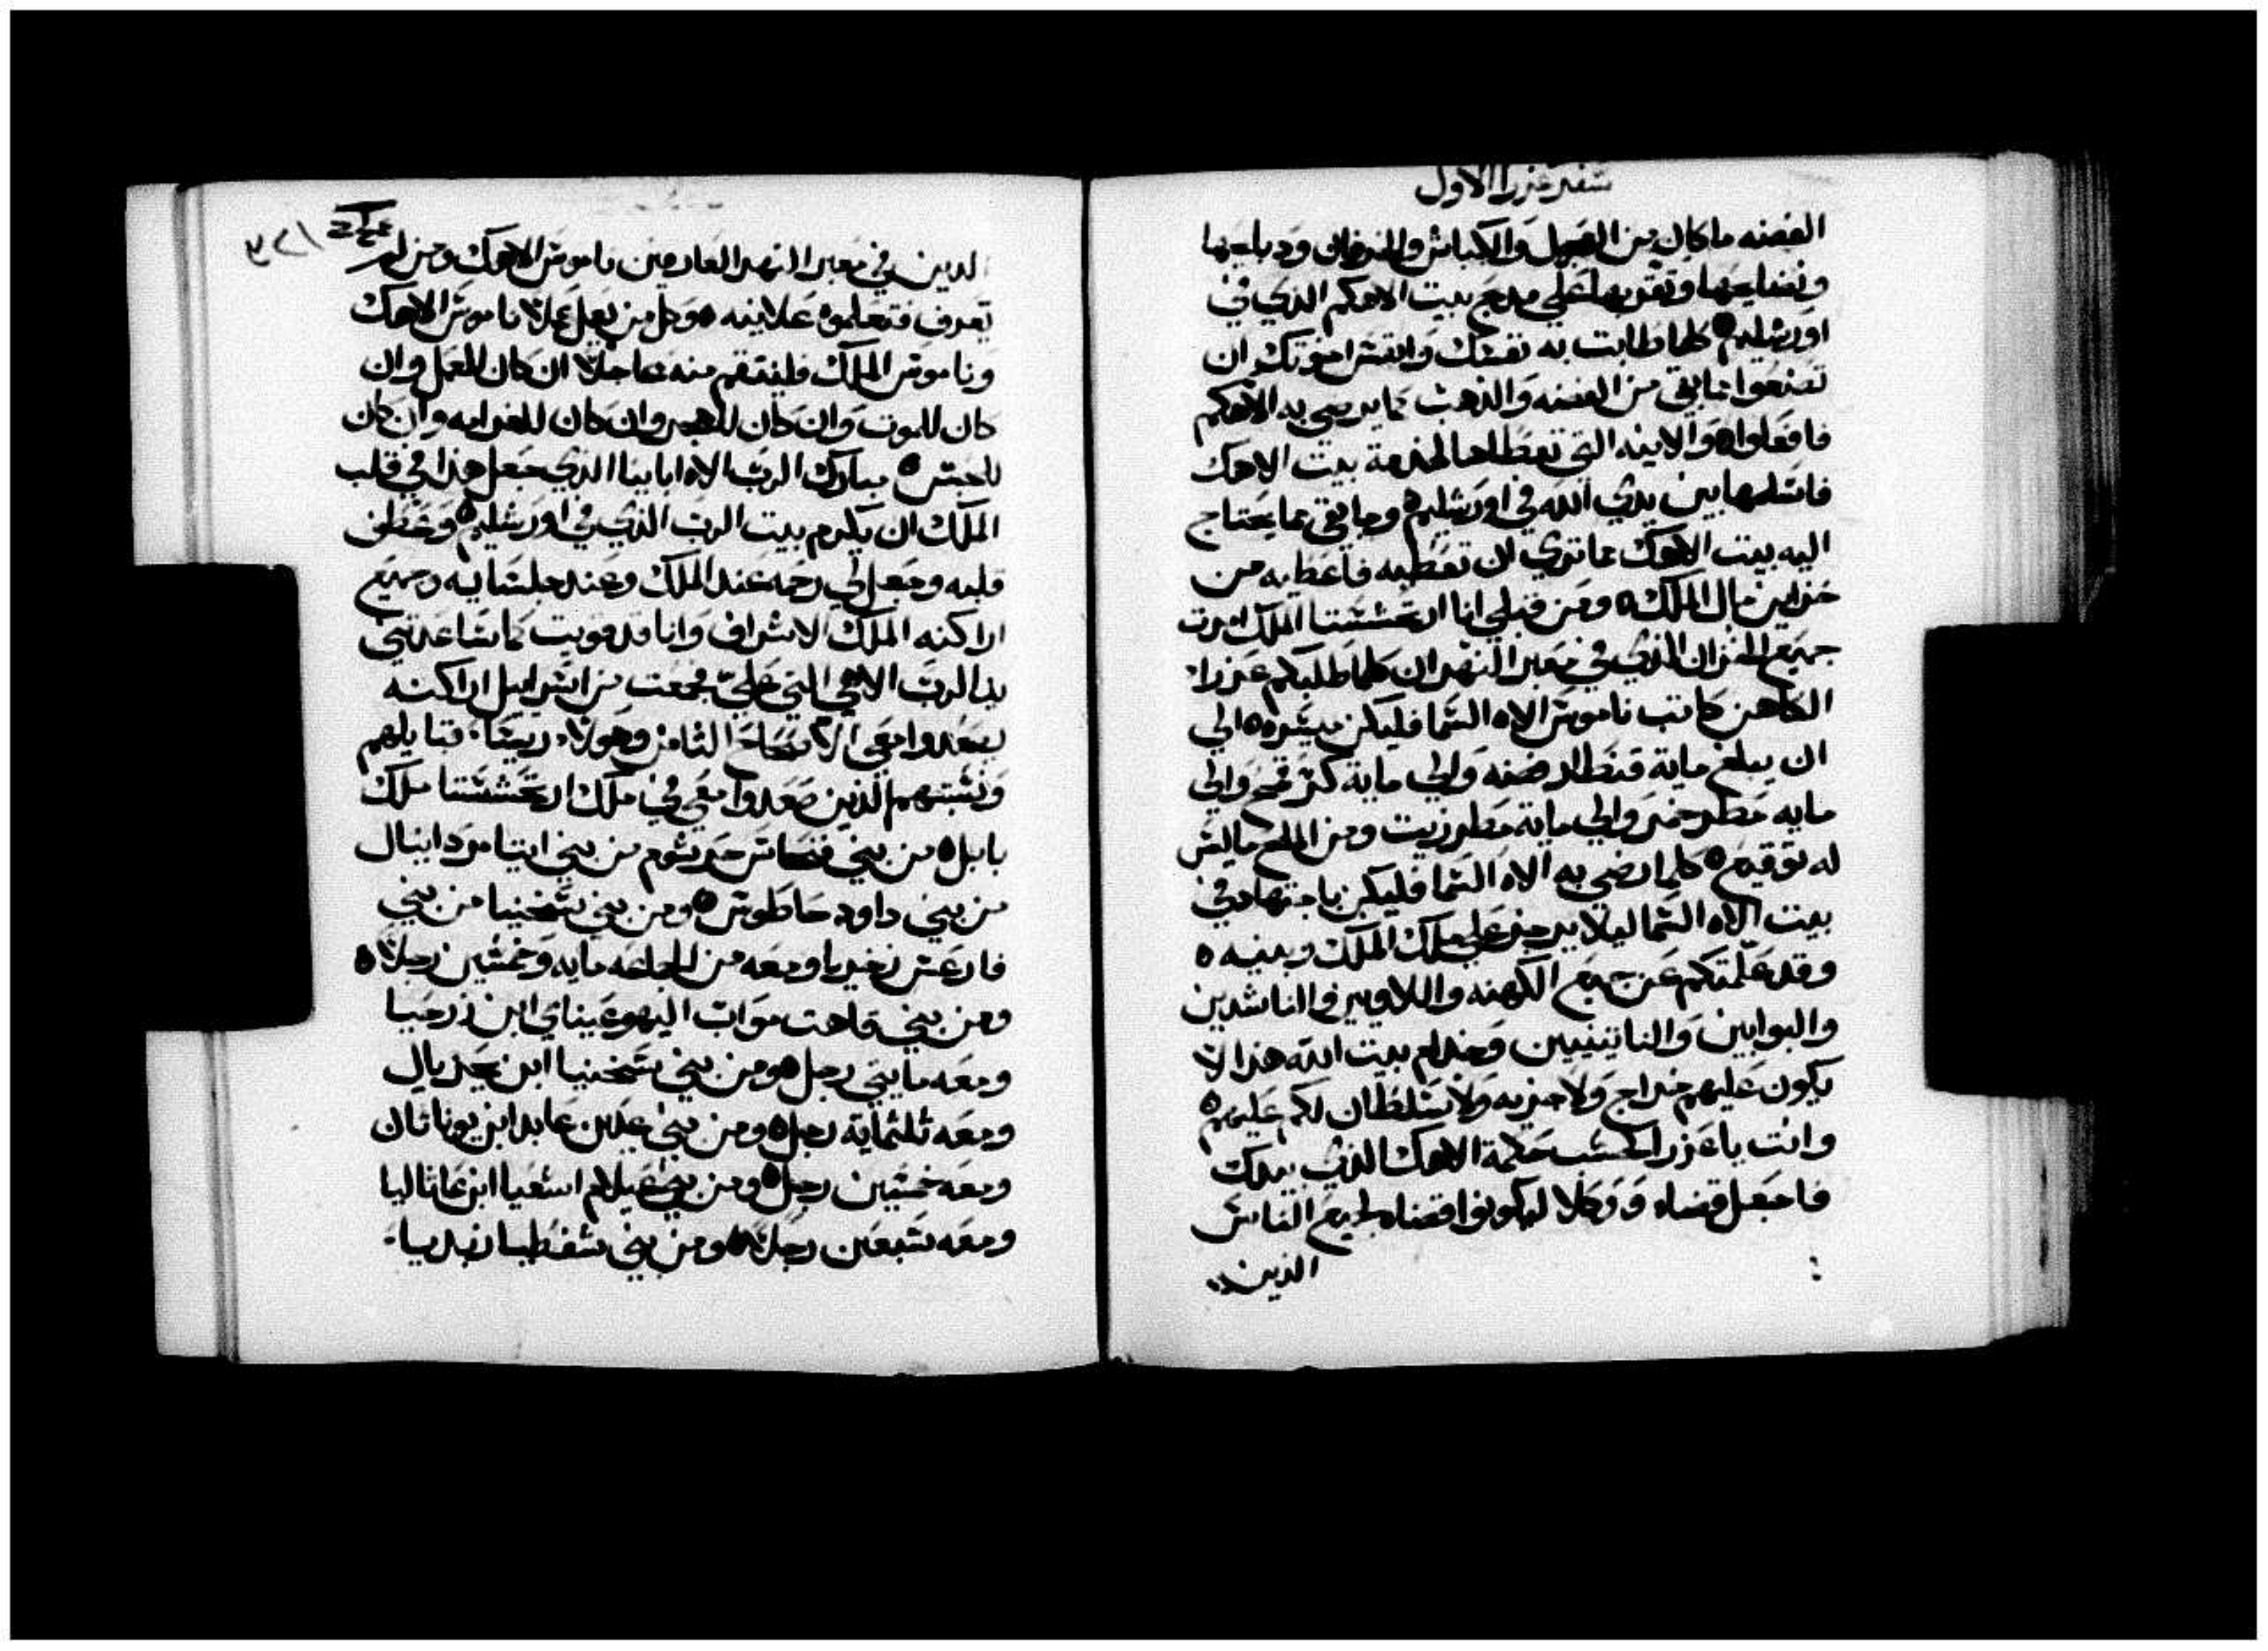 سفر عزرا الاول
الفضه ما كان من العجل والكباش والخرفان ودبايحها
ونضايحها وتقربها علي مدبح بيت الاهكم الذي في
اورشليم كلما طابت به نفسك وانفس اخوتك ان
تصنعوا بما بقي من الفضه والذهب بما يرضي به الاهكم
فافعلوا والانيه التي تعطاها لخدمة بيت الاهك
فاسلمها بين يدي الله في اورشليم وما بقي مما يحتاج
اليه بيت الاهك مما تري ان تعطيه فاعطيه من
خزاين مال الملك ومن قبلي انا ارتحششتا الملك امرت
جميع الخزان الذي في معبر النهر ان كلما طلبكم عزرا
الكاهن كاتب ناموس الاه السما فليكن بيسره الي
ان يبلغ ماية قنطار فضه والي ماية كر قمح والي
مايه مطر خمر والي ماية مطر زيت ومن الملح ما ليس
له توقيع كلما رضي به الاه السما فليكن باجتهاد في
بيت الاه السما ليلا يرجز علي ملك الملك وبنيه
وقد علمتكم عن جميع الكهنه واللاويين والناشدين
والبوابين والناتينيين وخدام بيت الله هذا لا
يكون عليهم خراج ولا جزيه ولا سلطان لكم عليهم
وانت يا عزرا كحسب حكمة الاهك الذي بيدك
فاجعل قضاه ووكلا ليكونوا قضاه لجميع الناس
الذين
الذين في معبر النهر العارفين ناموس الاهك ومن لم
يعرف فتعلموه علانيه وكل من يعمل عملا ناموس الاهك
وناموس الملك فلينتقم منه عاجلا ان كان للعمل وان
كان للموت وان كان للهجر وان كان للغرامه وان كان
للحبس مبارك الرب الاه ابايينا الذي جعل هذا في قلب
الملك ان يكرم بيت الرب الذي في اورشليم وعطف
قلبه وجعل لي رحمه عند الملك وعند جلسايه وجميع
اراكنه الملك الاشراف وانا قد قويت كما ساعدتني
يد الرب الاهي التي علي فجمعت من اسراييل اراكنه
يصعدوا معي الاصحاح الثامن وهولا ريسا قبايلهم
ونسبتهم الذين صعدوا معي في ملك ارتحششتا ملك
بابل من بني فنحاس جرشوم من بني ايتامر دانيال
من بني داود حاطوش ومن بني شخنيا من بني
فارعش زخريا ومعه من الجماعه مايه وخمسين رجلا
ومن بني قاهت مواب اليهوعيناي ابن زرحيا
ومعه مايتي رجل ومن بني شخنيا ابن يحزيال
ومعه ثلثماية رجل ومن بني عدين عابد ابن يوناثان
ومعه خمسين رجل ومن بني عيلام اشعيا ابن عاثاليا
ومعه سبعين رجلا ومن بني شفطيا زبديا